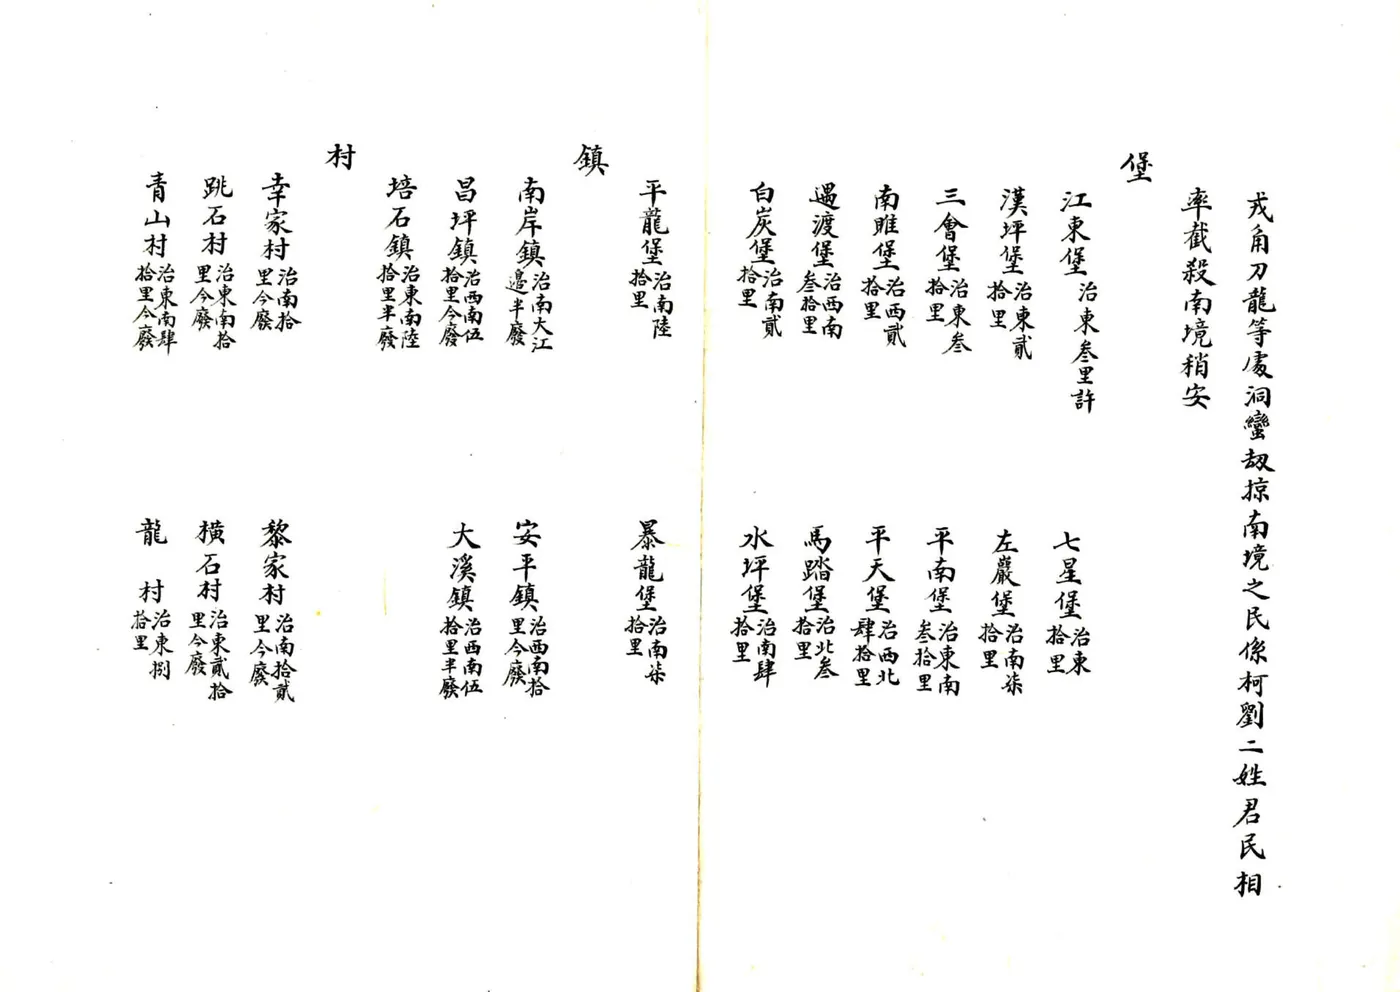 戎角刀龍等處洞蠻刼掠南境之民係柯劉二姓君民相
率截殺南境稍安
堡
江東堡治東叁里許　七星堡治東拾里
漢坪堡治東貳拾里　左巖堡治南柒拾里
三會堡治東叁拾里　平南堡治東南叁拾里
南睢堡治西貳拾里　平天堡治西北肆拾里
遇渡堡治西南叁拾里　馬踏堡治北叁拾里
白炭堡治南貳拾里　水坪堡治南肆拾里
平龍堡治南陸拾里　暴龍堡治南柒拾里
鎮
南岸鎮治南大江邊半廢　安平鎮治西南拾里今廢
昌坪鎮治西南伍拾里今廢　大溪鎮治西南伍拾里半廢
培石鎮治東南陸拾里半廢
村
幸家村治南拾里今廢　黎家村治南拾貳里今廢
跳石村治東南拾里今廢　橫石村治東貳拾里今廢
青山村治東南肆拾里今廢　龍村治東捌拾里